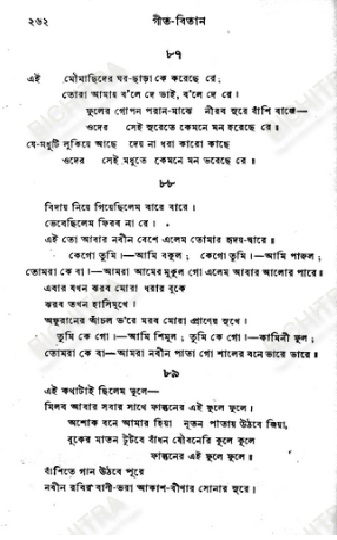 ২৬২ গীত-বিতান
৮৭
এই মৌমাছিদের ঘর-ছাড়া কে করেছে রে;
তোরা আমায় ব'লে দে ভাই, ব'লে দে রে।
ফুলের গোপন পরান-মাঝে নীরব সুরে বাঁশি বাজে—
ওদের সেই সুরেতে কেমনে মন হরেছে রে॥
যে-মধুটি লুকিয়ে আছে দেয় না ধরা কারো কাছে
ওদের সেই মধুতে কেমনে মন ভরেছে রে॥
৮৮
বিদায় নিয়ে গিয়েছিলেম বারে বারে।
ভেবেছিলেম ফিরব না রে।
এই তো আবার নবীন বেশে এলেম তোমার হৃদয়-দ্বারে॥
কেগো তুমি।—আমি বকুল; কেগো তুমি।—আমি পারুল;
তোমরা কে বা।—আমরা আমের মুকুল গো এলেম আবার আলোর পারে॥
এবার যখন ঝরব মোরা ধরার বুকে
ঝরব তখন হাসিমুখে।
অফুরানের আঁচল ভ'রে মরব মোরা প্রাণের সুখে।
তুমি কে গো।—আমি শিমুল; তুমি কে গো।—কামিনী ফুল;
তোমরা কে বা—আমরা নবীন পাতা গো শালের বনে ভারে ভারে॥
৮৯
এই কথাটাই ছিলেম ভুলে—
মিলব আবার সবার সাথে ফাল্গুনের এই ফুলে ফুলে।
অশোক বনে আমার হিয়া নূতন পাতায় উঠবে জিয়া,
বুকের মাতন টুটবে বাঁধন যৌবনেরি কূলে কূলে
ফাল্গুনের এই ফুলে ফুলে॥
বাঁশিতে গান উঠবে পূরে
নবীন রবির বাণী-ভরা আকাশ-বীণার সোনার সুরে॥